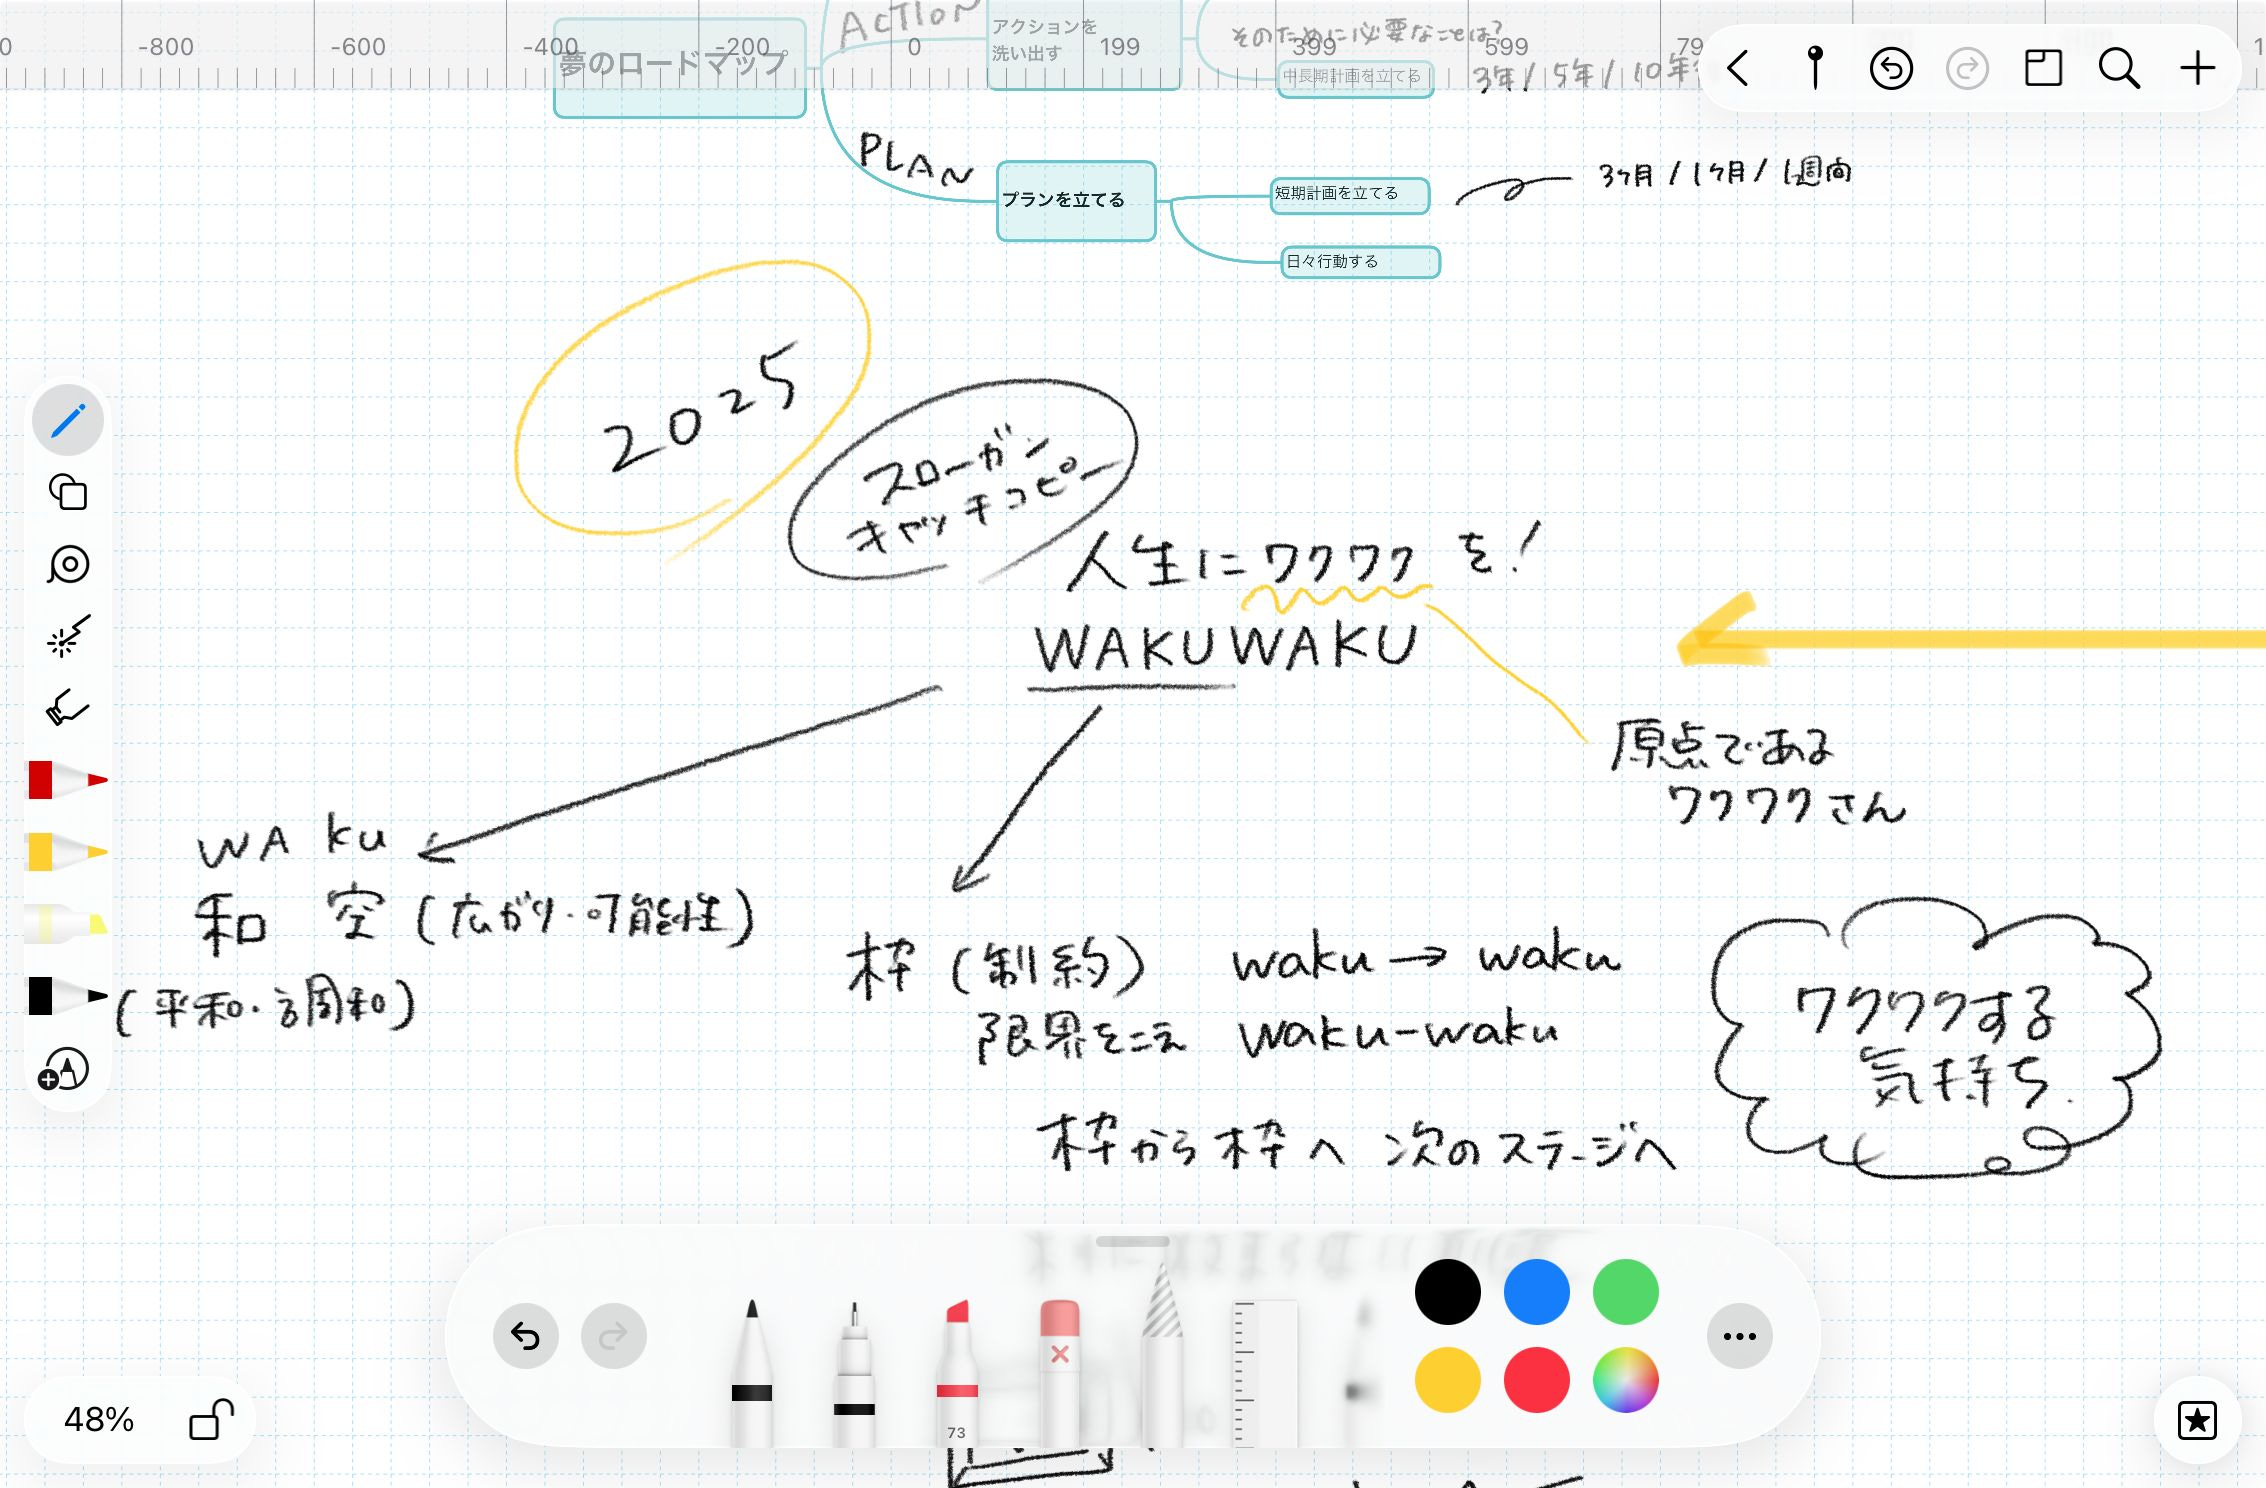 -800 -600 -400 -200 0 199 399 599
ACTION
アクションを
洗い出す
そのために必要なことは?
夢のロードマップ
中長期計画を立てる
3年/5年/10年
PLAN
プランを立てる
短期計画を立てる
3ヶ月/1ヶ月/1週間
日々行動する
2025
スローガン
キャッチコピー
人生にワクワクを!
WAKUWAKU
原点である
ワクワクさん
WA ku
和 空(広がり・可能性)
(平和・調和)
枠(制約) waku→waku
限界をこえ waku-waku
枠から枠へ 次のステージへ
ワクワクする
気持ち.
73
48%